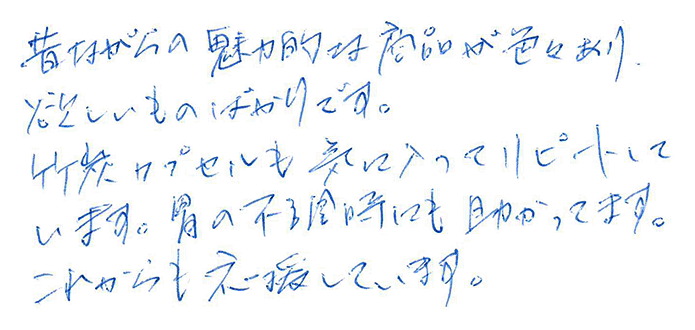 昔ながらの魅力的な商品が色々あり、
欲しいものばかりです。
竹炭カプセルも気に入ってリピートして
います。胃の不調時にも助かってます。
これからも応援しています。